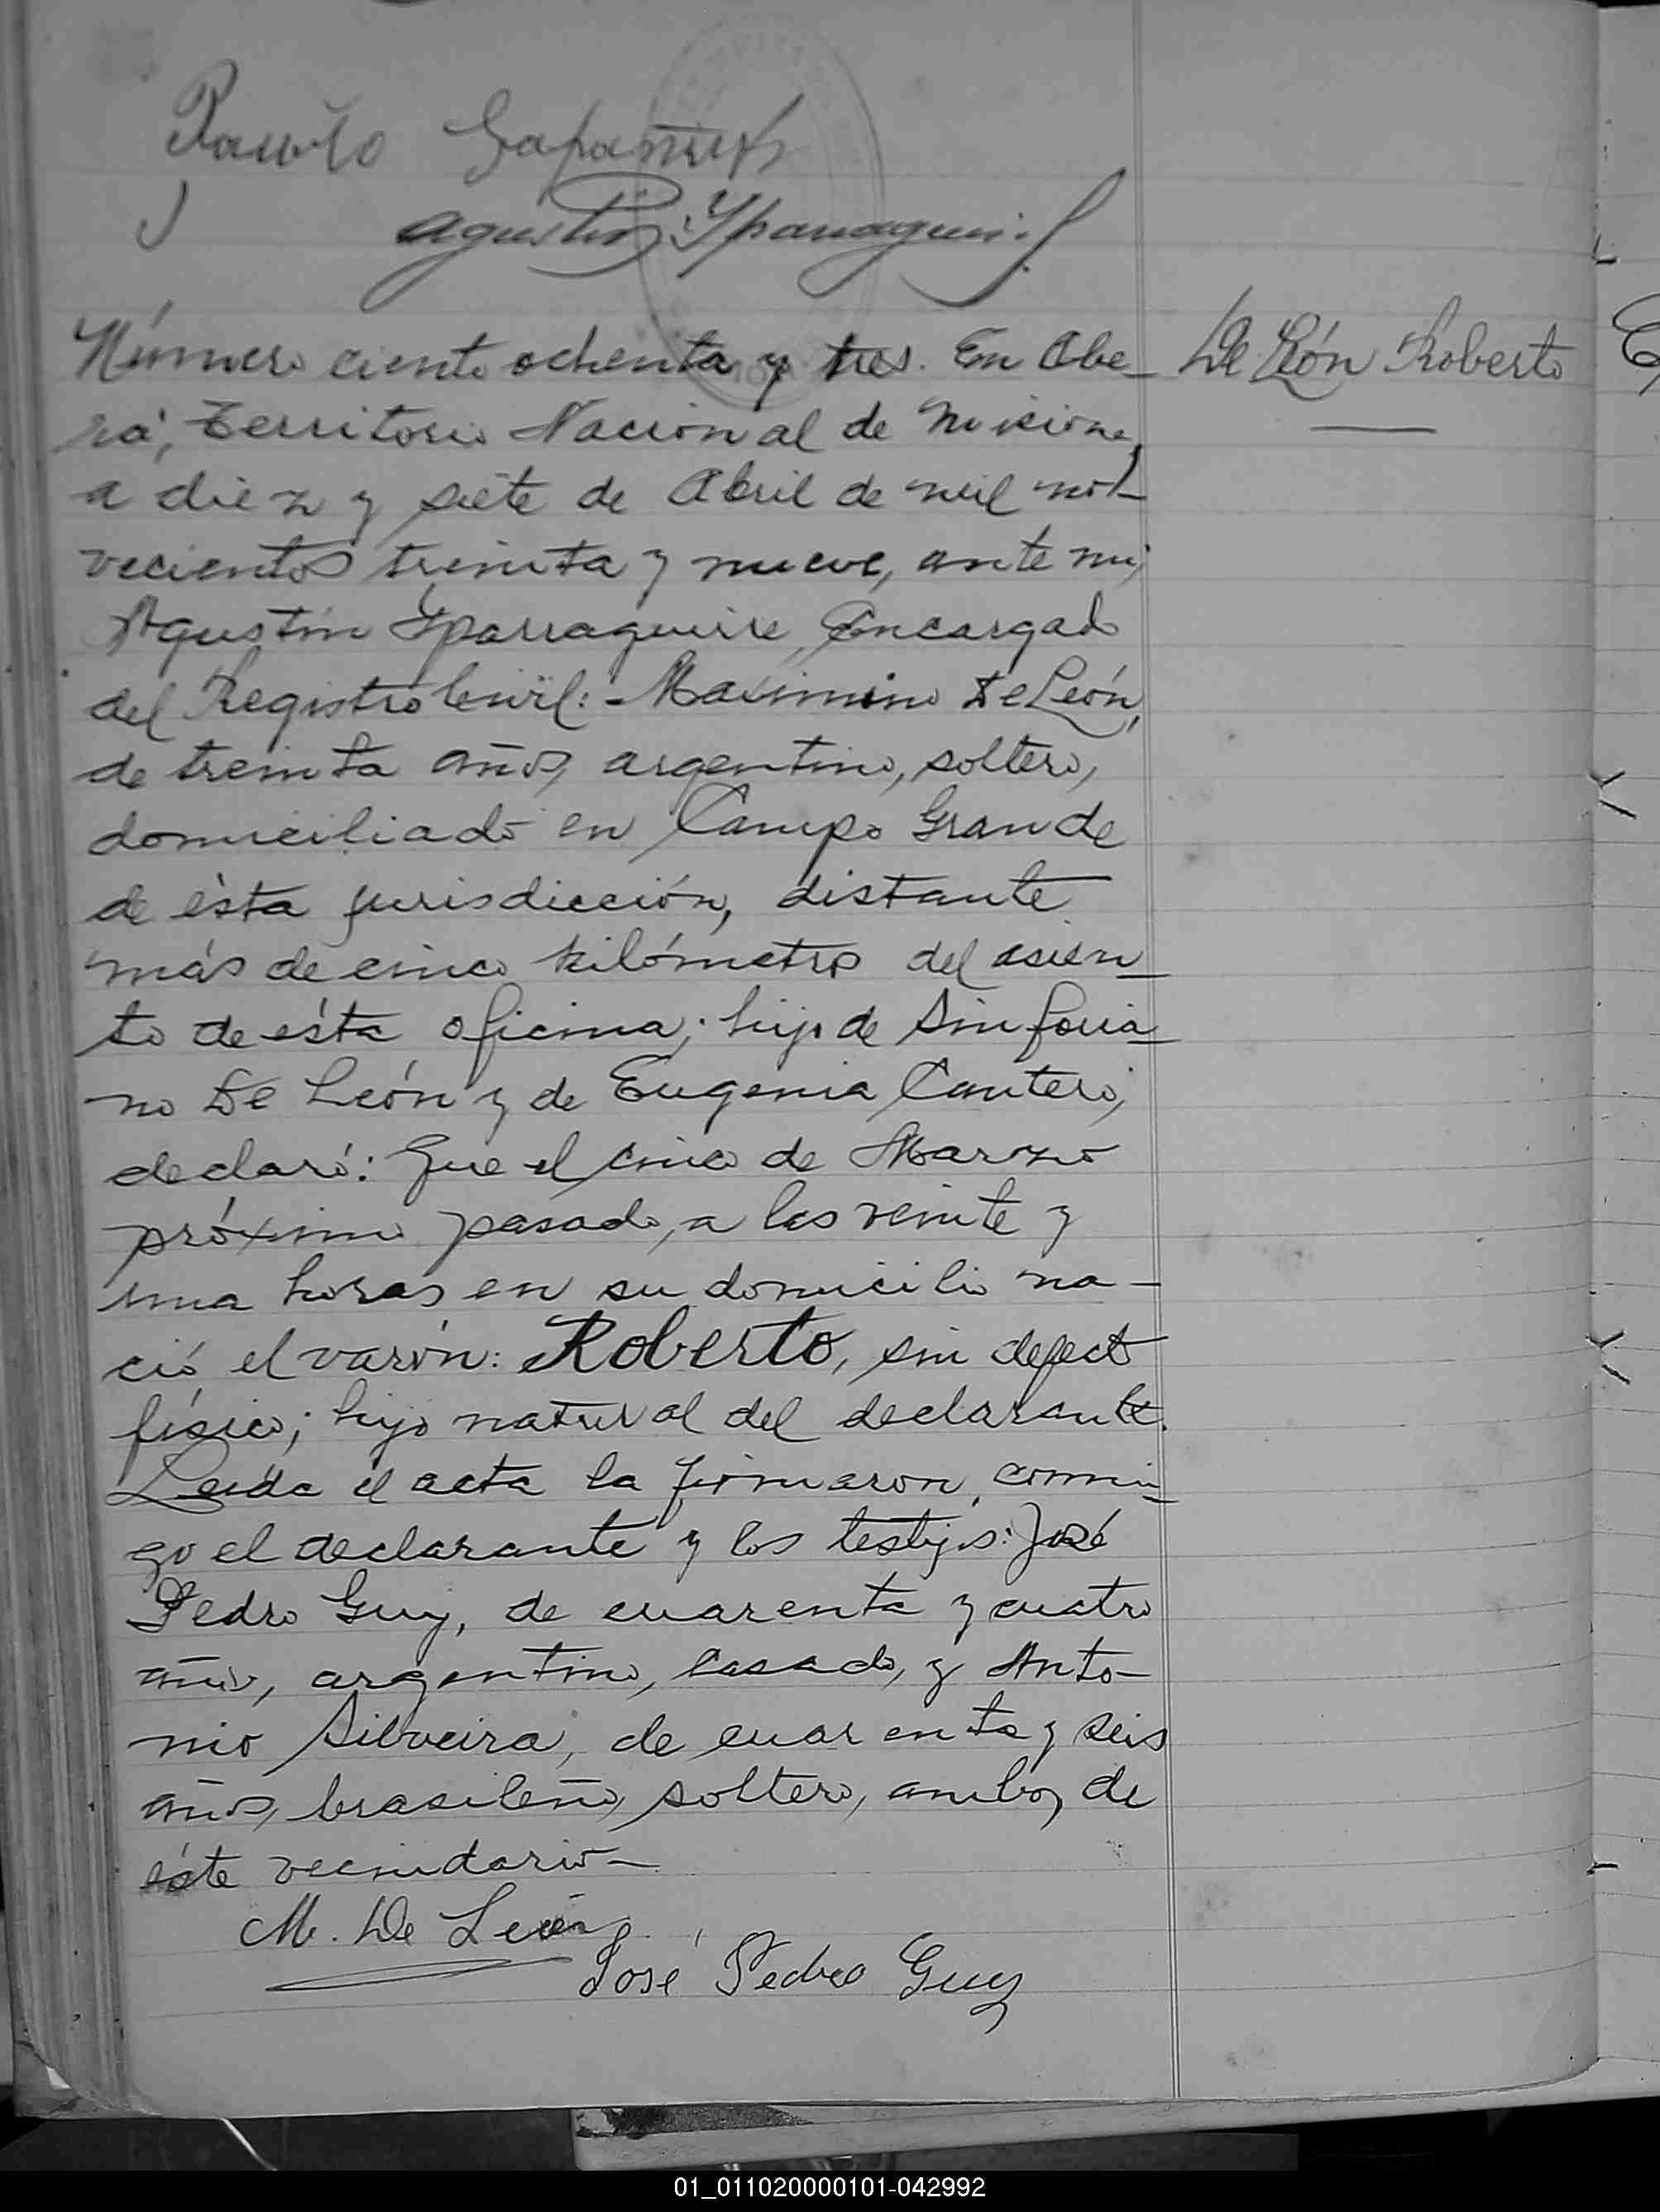 Agustín Yparraguirre
Número ciento ochenta y tres. En Obe-
rá, Territorio Nacional de Misiones,
a diez y siete de Abril de mil no-
vecientos treinta y nueve, ante mi,
Agustín Yparraguirre, Encargado
del Registro Civil: Maximino De León,
de treinta años, argentino, soltero,
domiciliado en Campo Grande
de ésta jurisdicción, distante
más de cinco kilómetros del asien-
to de ésta oficina; hijo de Sinforia-
no De León y de Eugenia Cantero,
declaró: Que el cinco de Marzo
próximo pasado, a las veinte y
una horas en su domicilio na-
ció el varón: Roberto, sin defecto
físico; hijo natural del declarante.
Leída el acta la firmaron, conmi-
go el declarante y los testigos: José
Pedro Guy, de cuarenta y cuatro
años, argentino, casado, y Anto-
nio Silveira, de cuarenta y seis
años, brasileño, soltero, ambos de
éste vecindario-
De León Roberto
M. De León
José Pedro Guy
01_011020000101-042992